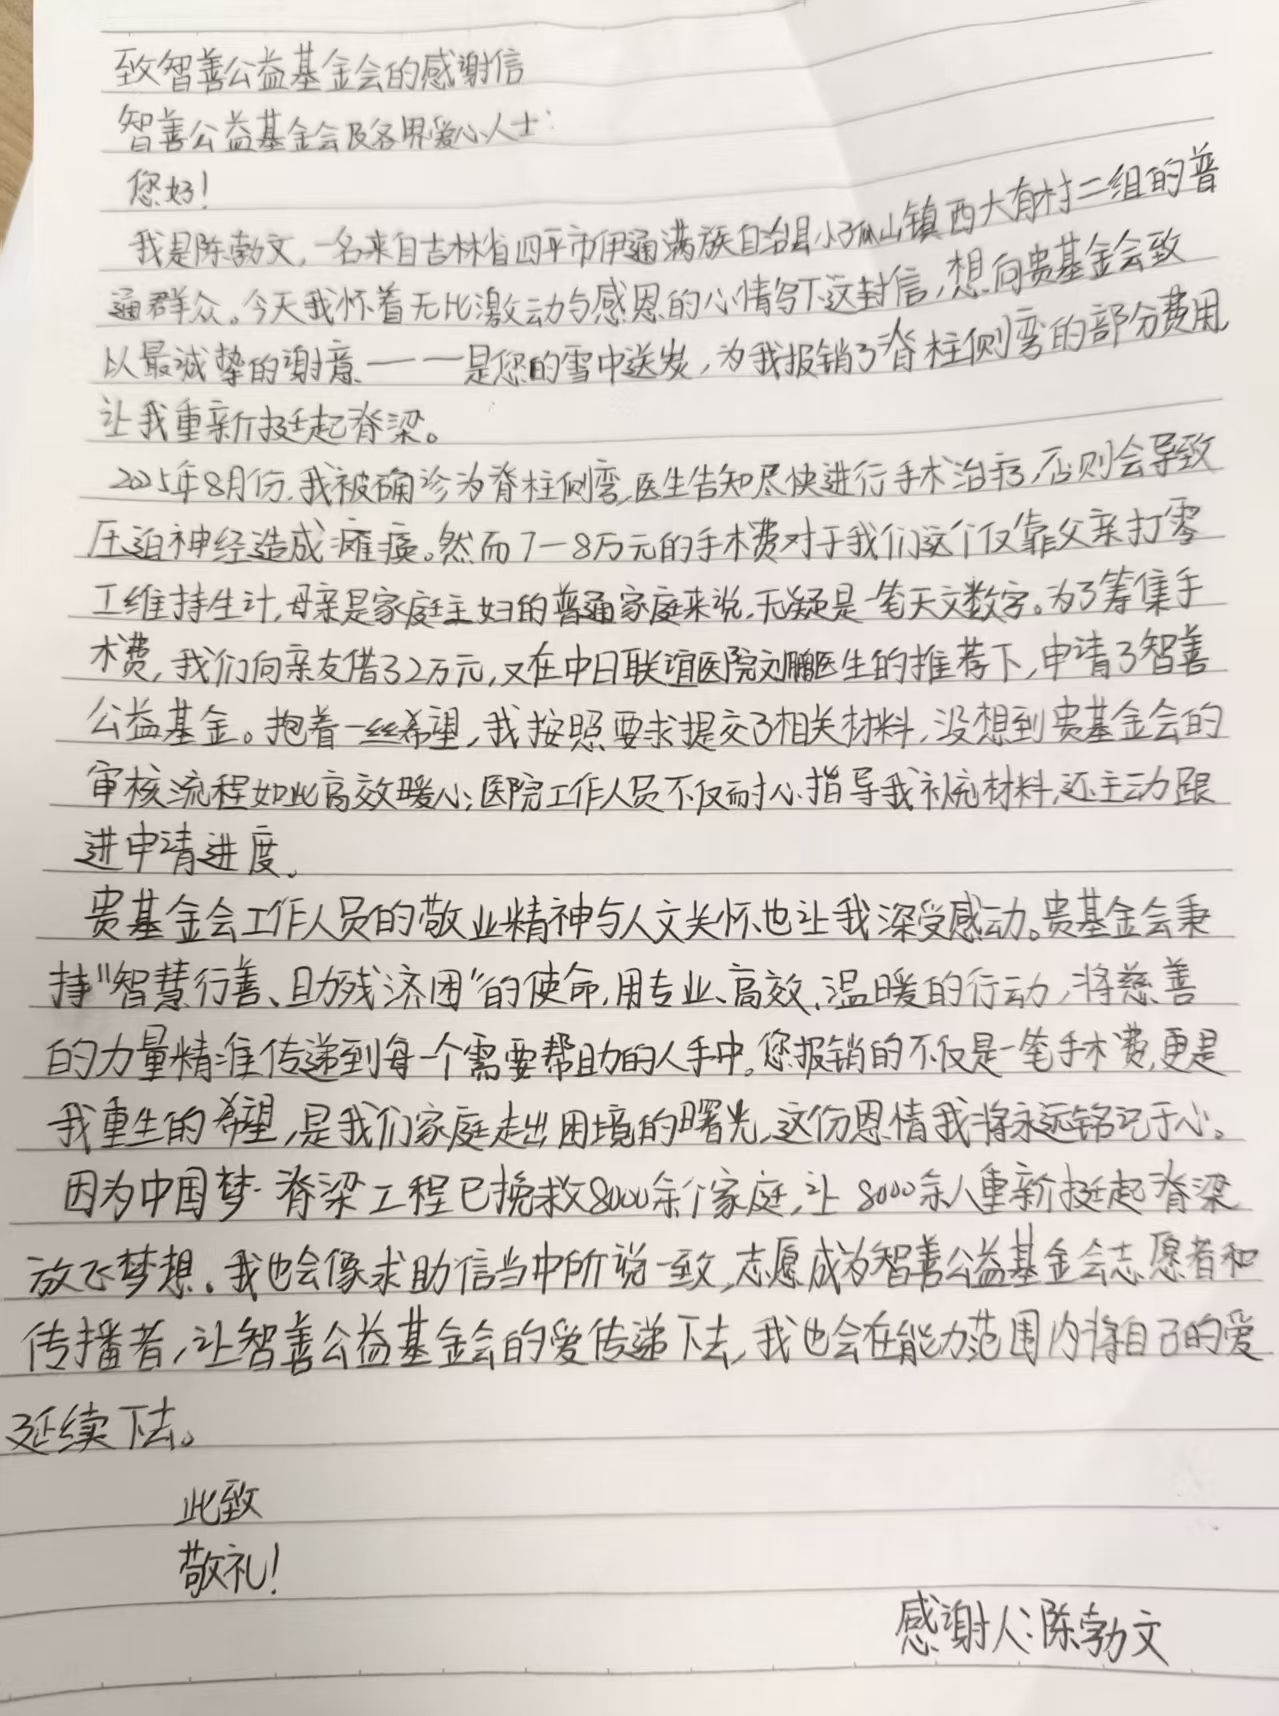 致智善公益基金会的感谢信
智善公益基金会及各界爱心人士：
您好！
我是陈勃文，一名来自吉林省四平市伊通满族自治县小孤山镇西大有村二组的普
通群众。今天我怀着无比激动与感恩的心情写下这封信，想向贵基金会致
以最诚挚的谢意——是您的雪中送炭，为我报销了脊柱侧弯的部分费用，
让我重新挺起脊梁。
2025年8月份，我被确诊为脊柱侧弯，医生告知尽快进行手术治疗，否则会导致
压迫神经造成瘫痪。然而7-8万元的手术费对于我们这个仅靠父亲打零
工维持生计，母亲是家庭主妇的普通家庭来说，无疑是一笔天文数字。为了筹集手
术费，我们向亲友借了2万元，又在中日联谊医院刘鹏医生的推荐下，申请了智善
公益基金。抱着一丝希望，我按照要求提交了相关材料，没想到贵基金会的
审核流程如此高效暖心；医院工作人员不仅耐心指导我补充材料，还主动跟
进申请进度。
贵基金会工作人员的敬业精神与人文关怀也让我深受感动。贵基金会秉
持"智慧行善、助残济困"的使命，用专业、高效、温暖的行动，将慈善
的力量精准传递到每一个需要帮助的人手中。您报销的不仅是一笔手术费，更是
我重生的希望，是我们家庭走出困境的曙光，这份恩情我将永远铭记于心。
因为中国梦·脊梁工程已挽救8000余个家庭，让8000余人重新挺起脊梁
放飞梦想。我也会像求助信当中所说一致，志愿成为智善公益基金会志愿者和
传播者，让智善公益基金会的爱传递下去，我也会在能力范围内将自己的爱
延续下去。
此致
敬礼！
感谢人：陈勃文